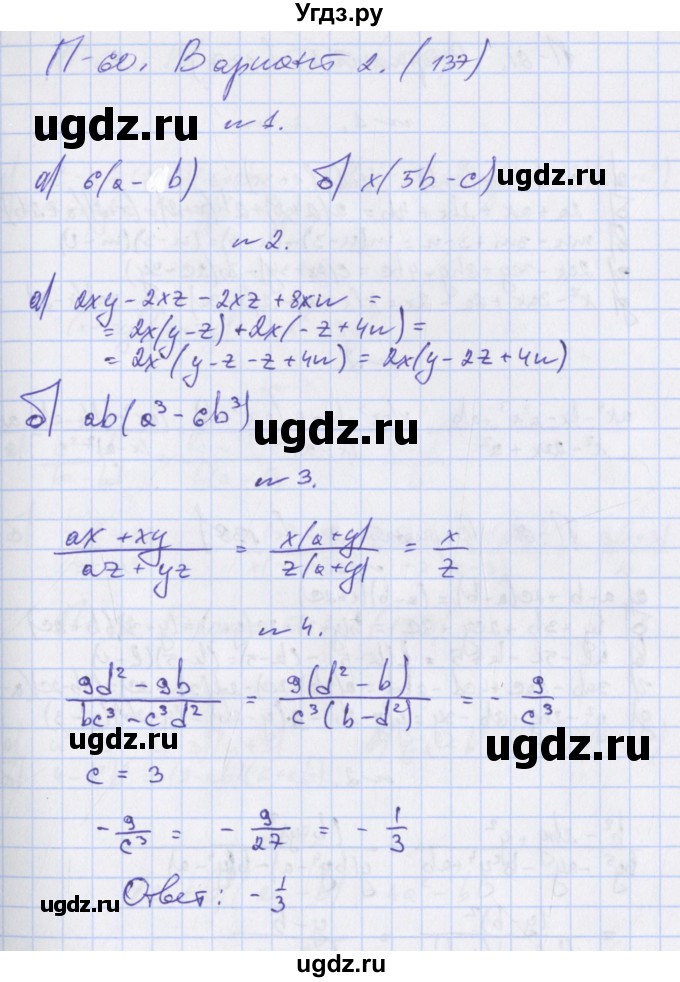 Угдз.ру
П-60. Вариант 2. (137)
ugdz.ru
№ 1.
а) 6(a - b) б) x(5b - c)
ugdz.ru
№ 2.
а) 2xy - 2xz - 2xz + 8xn =
= 2x(y - z) + 2x(-z + 4n) =
= 2x (y - z - z + 4n) = 2x(y - 2z + 4n)
б) ab(a³ - 6b³)
ugdz.ru
№ 3.
(ax + xy)/(az + yz) = x(a+y)/z(a+y) = x/z
№ 4.
(9d² - 9b)/(bc³ - c³d²) = 9(d² - b)/c³(b - d²) = - 9/c³
ugdz.ru
c = 3
- 9/c³ = - 9/27 = - 1/3
ugdz.ru
Ответ: - 1/3
ugdz.ru